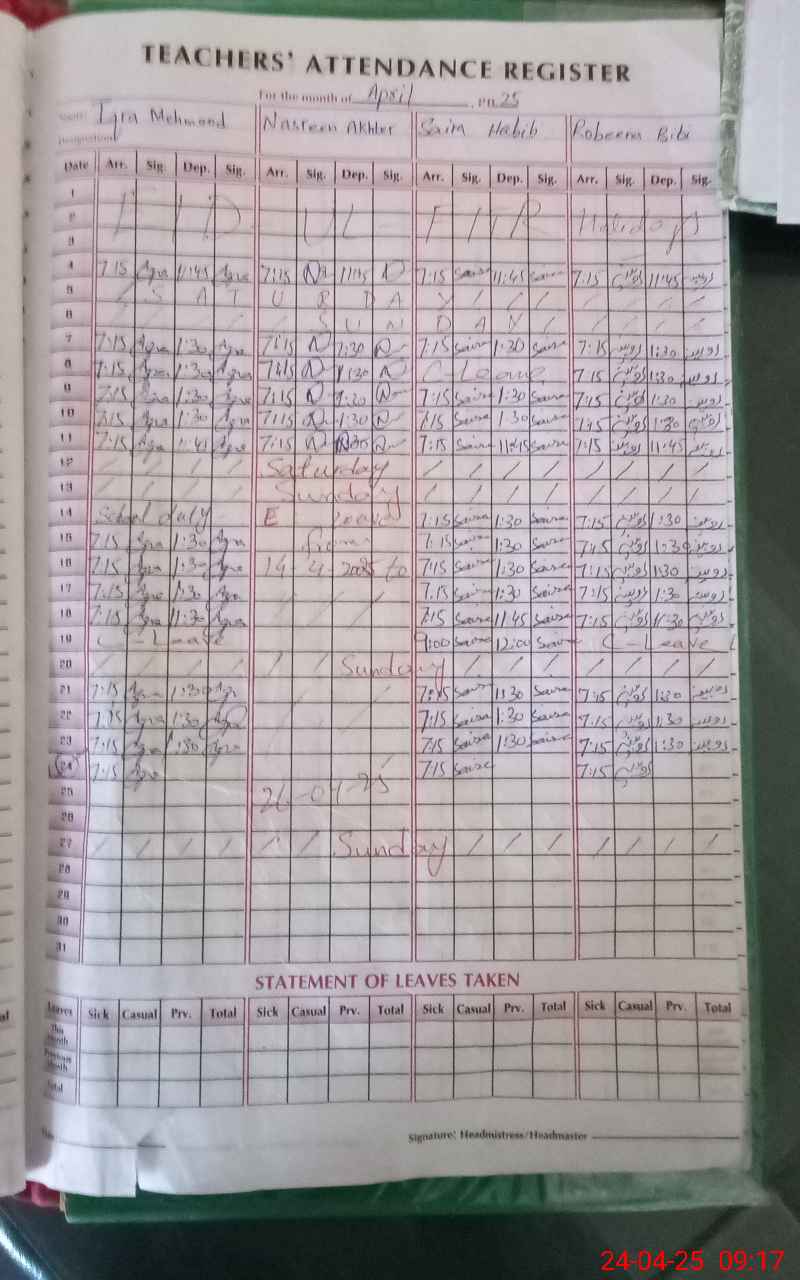 TEACHERS' ATTENDANCE REGISTER
For the month of April 25
Iqra Mehmood Nasreen Akhter Saira Habib Robeena Bibi
Date Arr. Sig. Dep. Sig. Arr. Sig. Dep. Sig. Arr. Sig. Dep. Sig. Arr. Sig. Dep. Sig.
1
2 EID UL FITR Holidays
3
4 7:15 Iqra 11:45 Iqra 7:15 11:45 7:15 Saira 11:45 Saira 7:15 11:45
5 / S A T U R D A Y / / / / / / /
6 / / / / / S U N D A Y / / / / /
7 7:15 Iqra 1:30 Iqra 7:15 1:30 7:15 Saira 1:30 Saira 7:15 1:30
8 7:15 Iqra 1:30 Iqra 7:15 1:30 C-Leave 7:15 1:30
9 7:15 Iqra 1:30 Iqra 7:15 1:30 7:15 Saira 1:30 Saira 7:15 1:30
10 7:15 Iqra 1:30 Iqra 7:15 1:30 7:15 Saira 1:30 Saira 1:30
11 7:15 Iqra Iqra 7:15 7:15 Saira 11:45 Saira 7:15 11:45
12 / / / / Saturday / / / / / / / /
13 / / / / Sunday / / / / / / / /
14 School duty E leave 7:15 Saira 1:30 Saira 7:15 1:30
15 7:15 Iqra 1:30 Iqra from 7:15 Saira 1:30 Saira 1:30
16 7:15 Iqra 1:30 Iqra 14 - 4 2025 to 7:15 Saira 1:30 Saira 7:15 1:30
17 7:15 Iqra 1:30 Iqra 7:15 Saira 1:30 Saira 7:15 1:30
18 7:15 Iqra 11:30 Iqra 7:15 Saira 11:45 Saira 7:15 11:30
19 C-Leave 9:00 Saira 12:00 Saira C-Leave
20 / / / / / / Sunday / / / / / / /
21 7:15 Iqra 1:30 Iqra 7:15 Saira 1:30 Saira 7:15 1:30
22 7:15 Iqra 1:30 Iqra 7:15 Saira 1:30 Saira 7:15 1:30
23 7:15 Iqra 1:30 Iqra 7:15 Saira 1:30 Saira 7:15 1:30
24 7:15 Iqra 7:15 Saira 7:15
25 26-04-25
26
27 / / / / / / Sunday / / / / / / /
28
29
30
31
STATEMENT OF LEAVES TAKEN
Leaves Sick Casual Prv. Total Sick Casual Prv. Total Sick Casual Prv. Total Sick Casual Prv. Total
This Month
Previous Month
Total
Signature: Headmistress/Headmaster
24-04-25 09:17